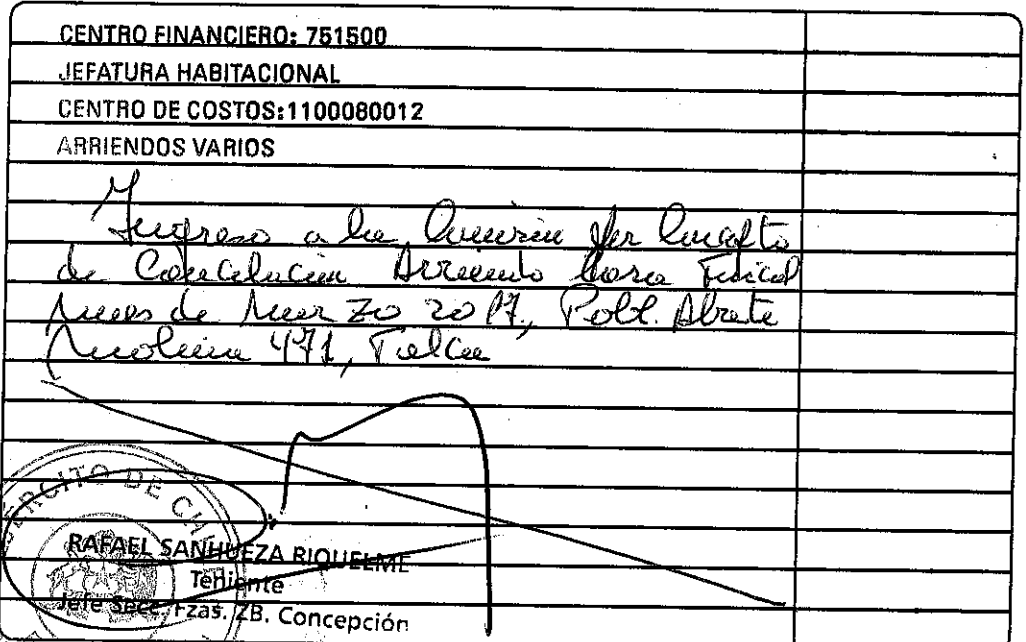 CENTRO FINANCIERO: 751500
JEFATURA HABITACIONAL
CENTRO DE COSTOS:1100080012
ARRIENDOS VARIOS
Ingreso a la por
de Cancelacion Arriendo Casa Fiscal
mes de Marzo 2017, Pobl. Abate
Molina 471, Talca
EJERCITO DE
RAFAEL SANHUEZA RIQUELME
Teniente
Jefe Secc. Fzas. ZB. Concepción